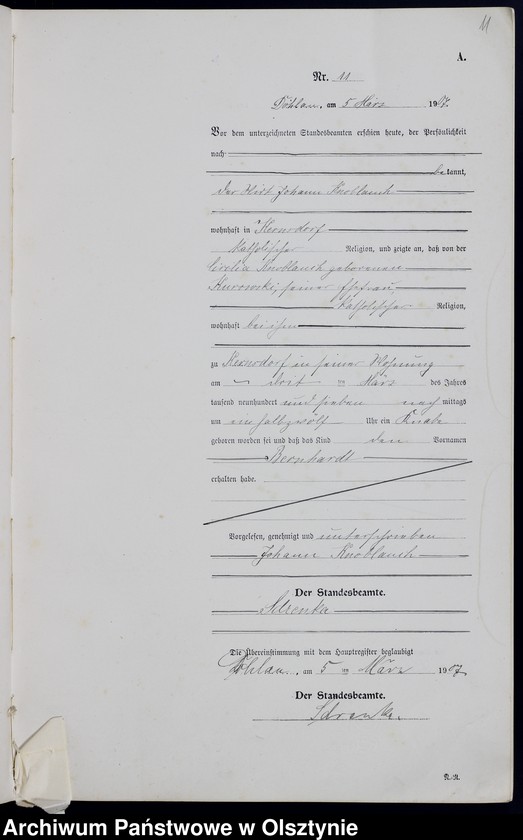 11
A.
Nr. 11
Döhlau, am 5 März 1907.
Vor dem unterzeichneten Standesbeamten erschien heute, der Persönlichkeit
nach
bekannt,
der Hirt Johann Knoblauch
wohnhaft in Kernsdorf
katholischer Religion, und zeigte an, daß von der
Knoblauch geborenen
Kurowski, seiner Ehefrau,
katholischer Religion,
wohnhaft bei ihm
zu Kernsdorf in seiner Wohnung
am drit März des Jahres
tausend neunhundert und sieben nachmittags
um ein halb zwölf Uhr ein Knabe
geboren worden sei und daß das Kind den Vornamen
Bernhardt
erhalten habe.
Vorgelesen, genehmigt und unterschrieben
Johann Knoblauch
Der Standesbeamte.
Die Übereinstimmung mit dem Hauptregister beglaubigt
Döhlau, am 5 ten März 1907
Der Standesbeamte.
Archiwum Państwowe w Olsztynie